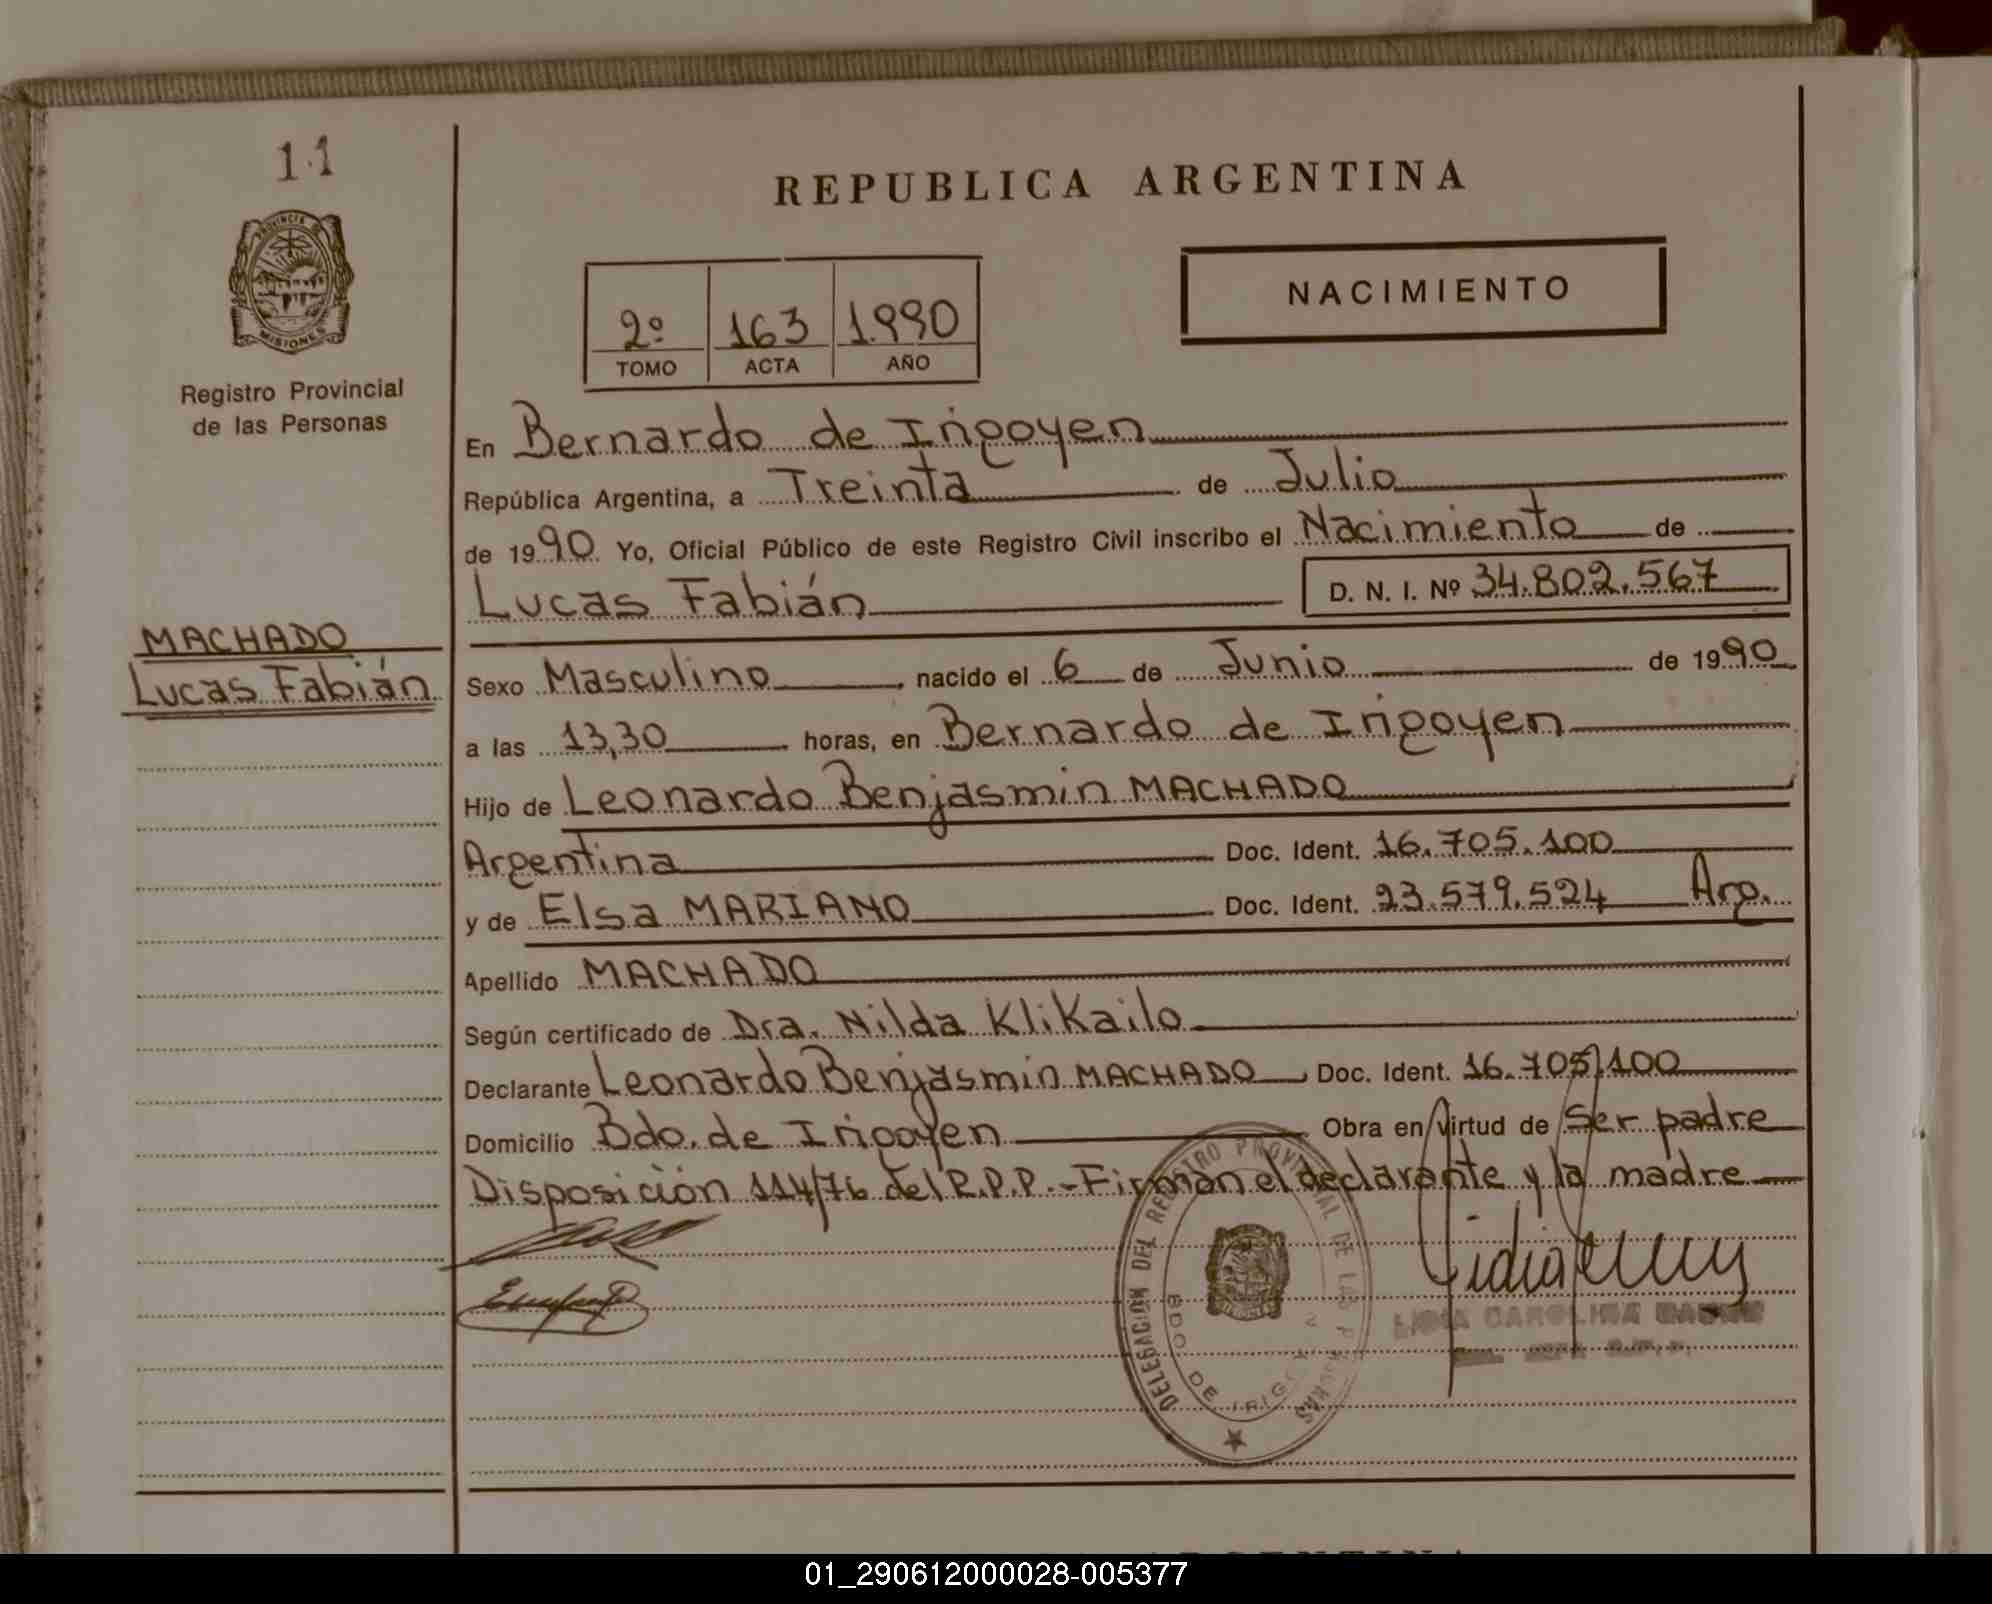 11
PROVINCIA DE
MISIONES
Registro Provincial
de las Personas
MACHADO
Lucas Fabián
REPUBLICA ARGENTINA
NACIMIENTO
2º 163 1.990
TOMO ACTA AÑO
En Bernardo de Irigoyen
República Argentina, a Treinta de Julio
de 1990 Yo, Oficial Público de este Registro Civil inscribo el Nacimiento de
Lucas Fabián D. N. I. Nº 34.802.567
Sexo Masculino, nacido el 6 de Junio de 1990
a las 13,30 horas, en Bernardo de Irigoyen
Hijo de Leonardo Benjasmin MACHADO
Argentina Doc. Ident. 16.705.100
y de Elsa MARIANO Doc. Ident. 23.579.524 Arg.
Apellido MACHADO
Según certificado de Dra. Nilda KliKailo
Declarante Leonardo Benjasmin MACHADO, Doc. Ident. 16.705.100
Domicilio Bdo. de Irigoyen Obra en virtud de Ser padre
Disposición 114/76 del R.P.P.- Firman el declarante y la madre
DELEGACION DEL REGISTRO PROVINCIAL DE LAS PERSONAS
BDO DE IRIGOYEN
LIDIA CAROLINA
ARGENTINA
01_290612000028-005377